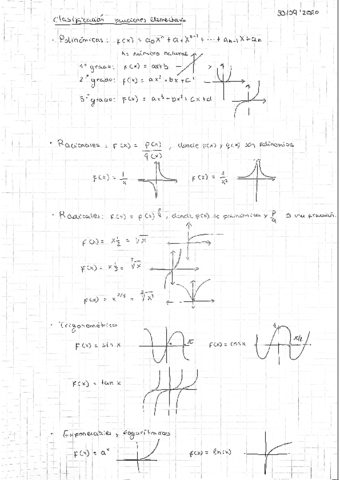 Clasificación funciones elementales 30/09/2020
· Polinómicas: f(x) = a₀xⁿ + a₁xⁿ⁻¹ + ... + aₙ₋₁x + aₙ
n: número natural
1º grado: f(x) = ax+b
2º grado: f(x) = ax² + bx + c
3º grado: f(x) = ax³ + bx² + cx + d
· Racionales: f(x) = p(x)/q(x), donde p(x) y q(x) son polinomios
f(x) = 1/x f(x) = 1/x²
· Radicales: f(x) = p(x)^(p/q), donde p(x) es polinomios y p/q es una fracción.
f(x) = x^(1/2) = √x
f(x) = x^(1/3) = ³√x
f(x) = x^(2/3) = ³√x²
· Trigonométricas
f(x) = sin x f(x) = cos x
f(x) = tan x
· Exponenciales y logarítmicas
f(x) = aˣ f(x) = ln(x)